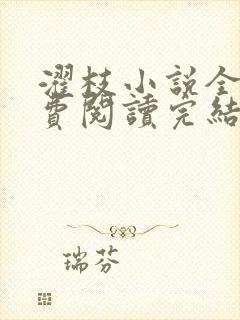 濯枝小說全
費閱讀完結
瑞芬